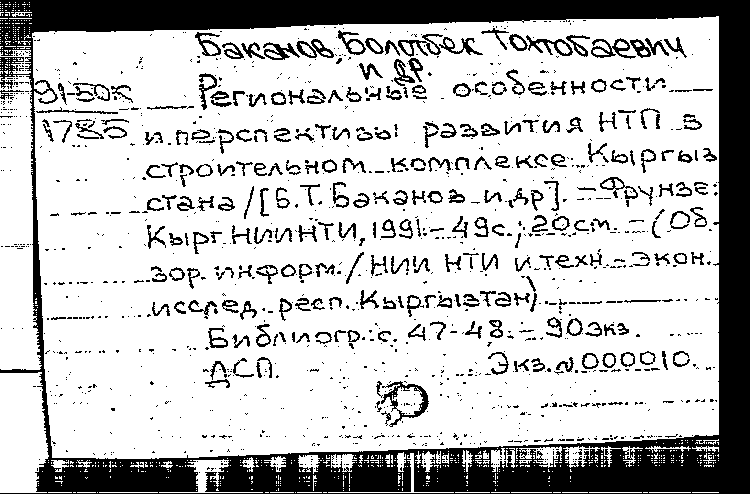 Баканов, Болотбек Токтобаевич
и др.
91-50к
Региональные особенности
1785
и перспективы развития НТП в
строительном комплексе Кыргыз
стана / [Б.Т. Баканов и др]. – Фрунзе:
Кырг НИИНТИ, 1991. – 49с.; 20см. – (Об-
зор. информ. / НИИ НТИ и техн.-экон.
исслед. респ. Кыргызтан)
Библиогр. с. 47-48. – 90экз.
ДСП. Экз. N 000010.